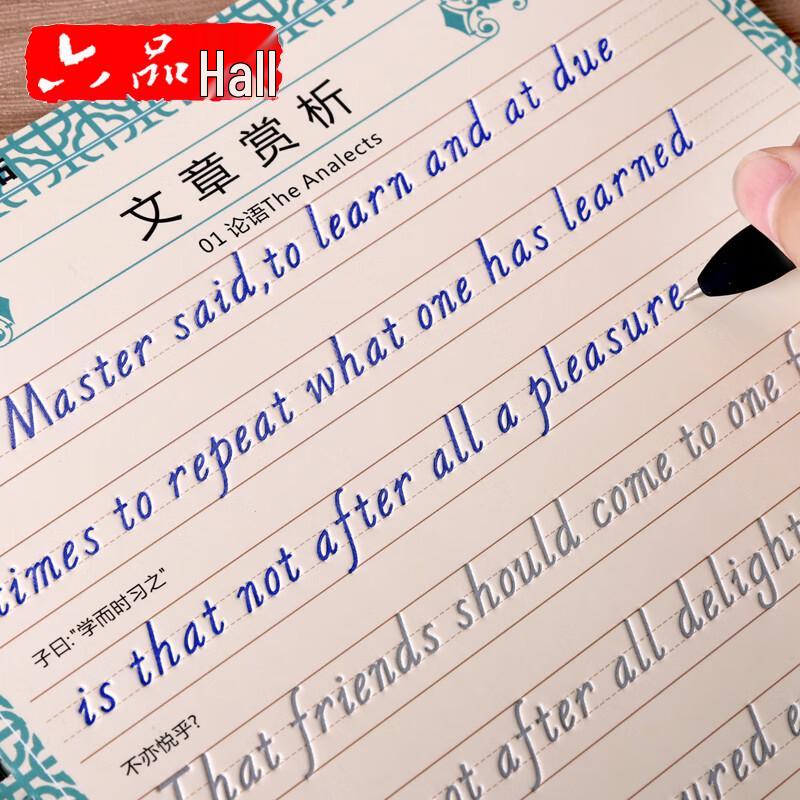 六品Hall
文章赏析
01 论语The Analects
Master said,to learn and at due
times to repeat what one has learned
子曰:"学而时习之"
is that not after all a pleasure
不亦悦乎?
That friends should come to one
not after all delight